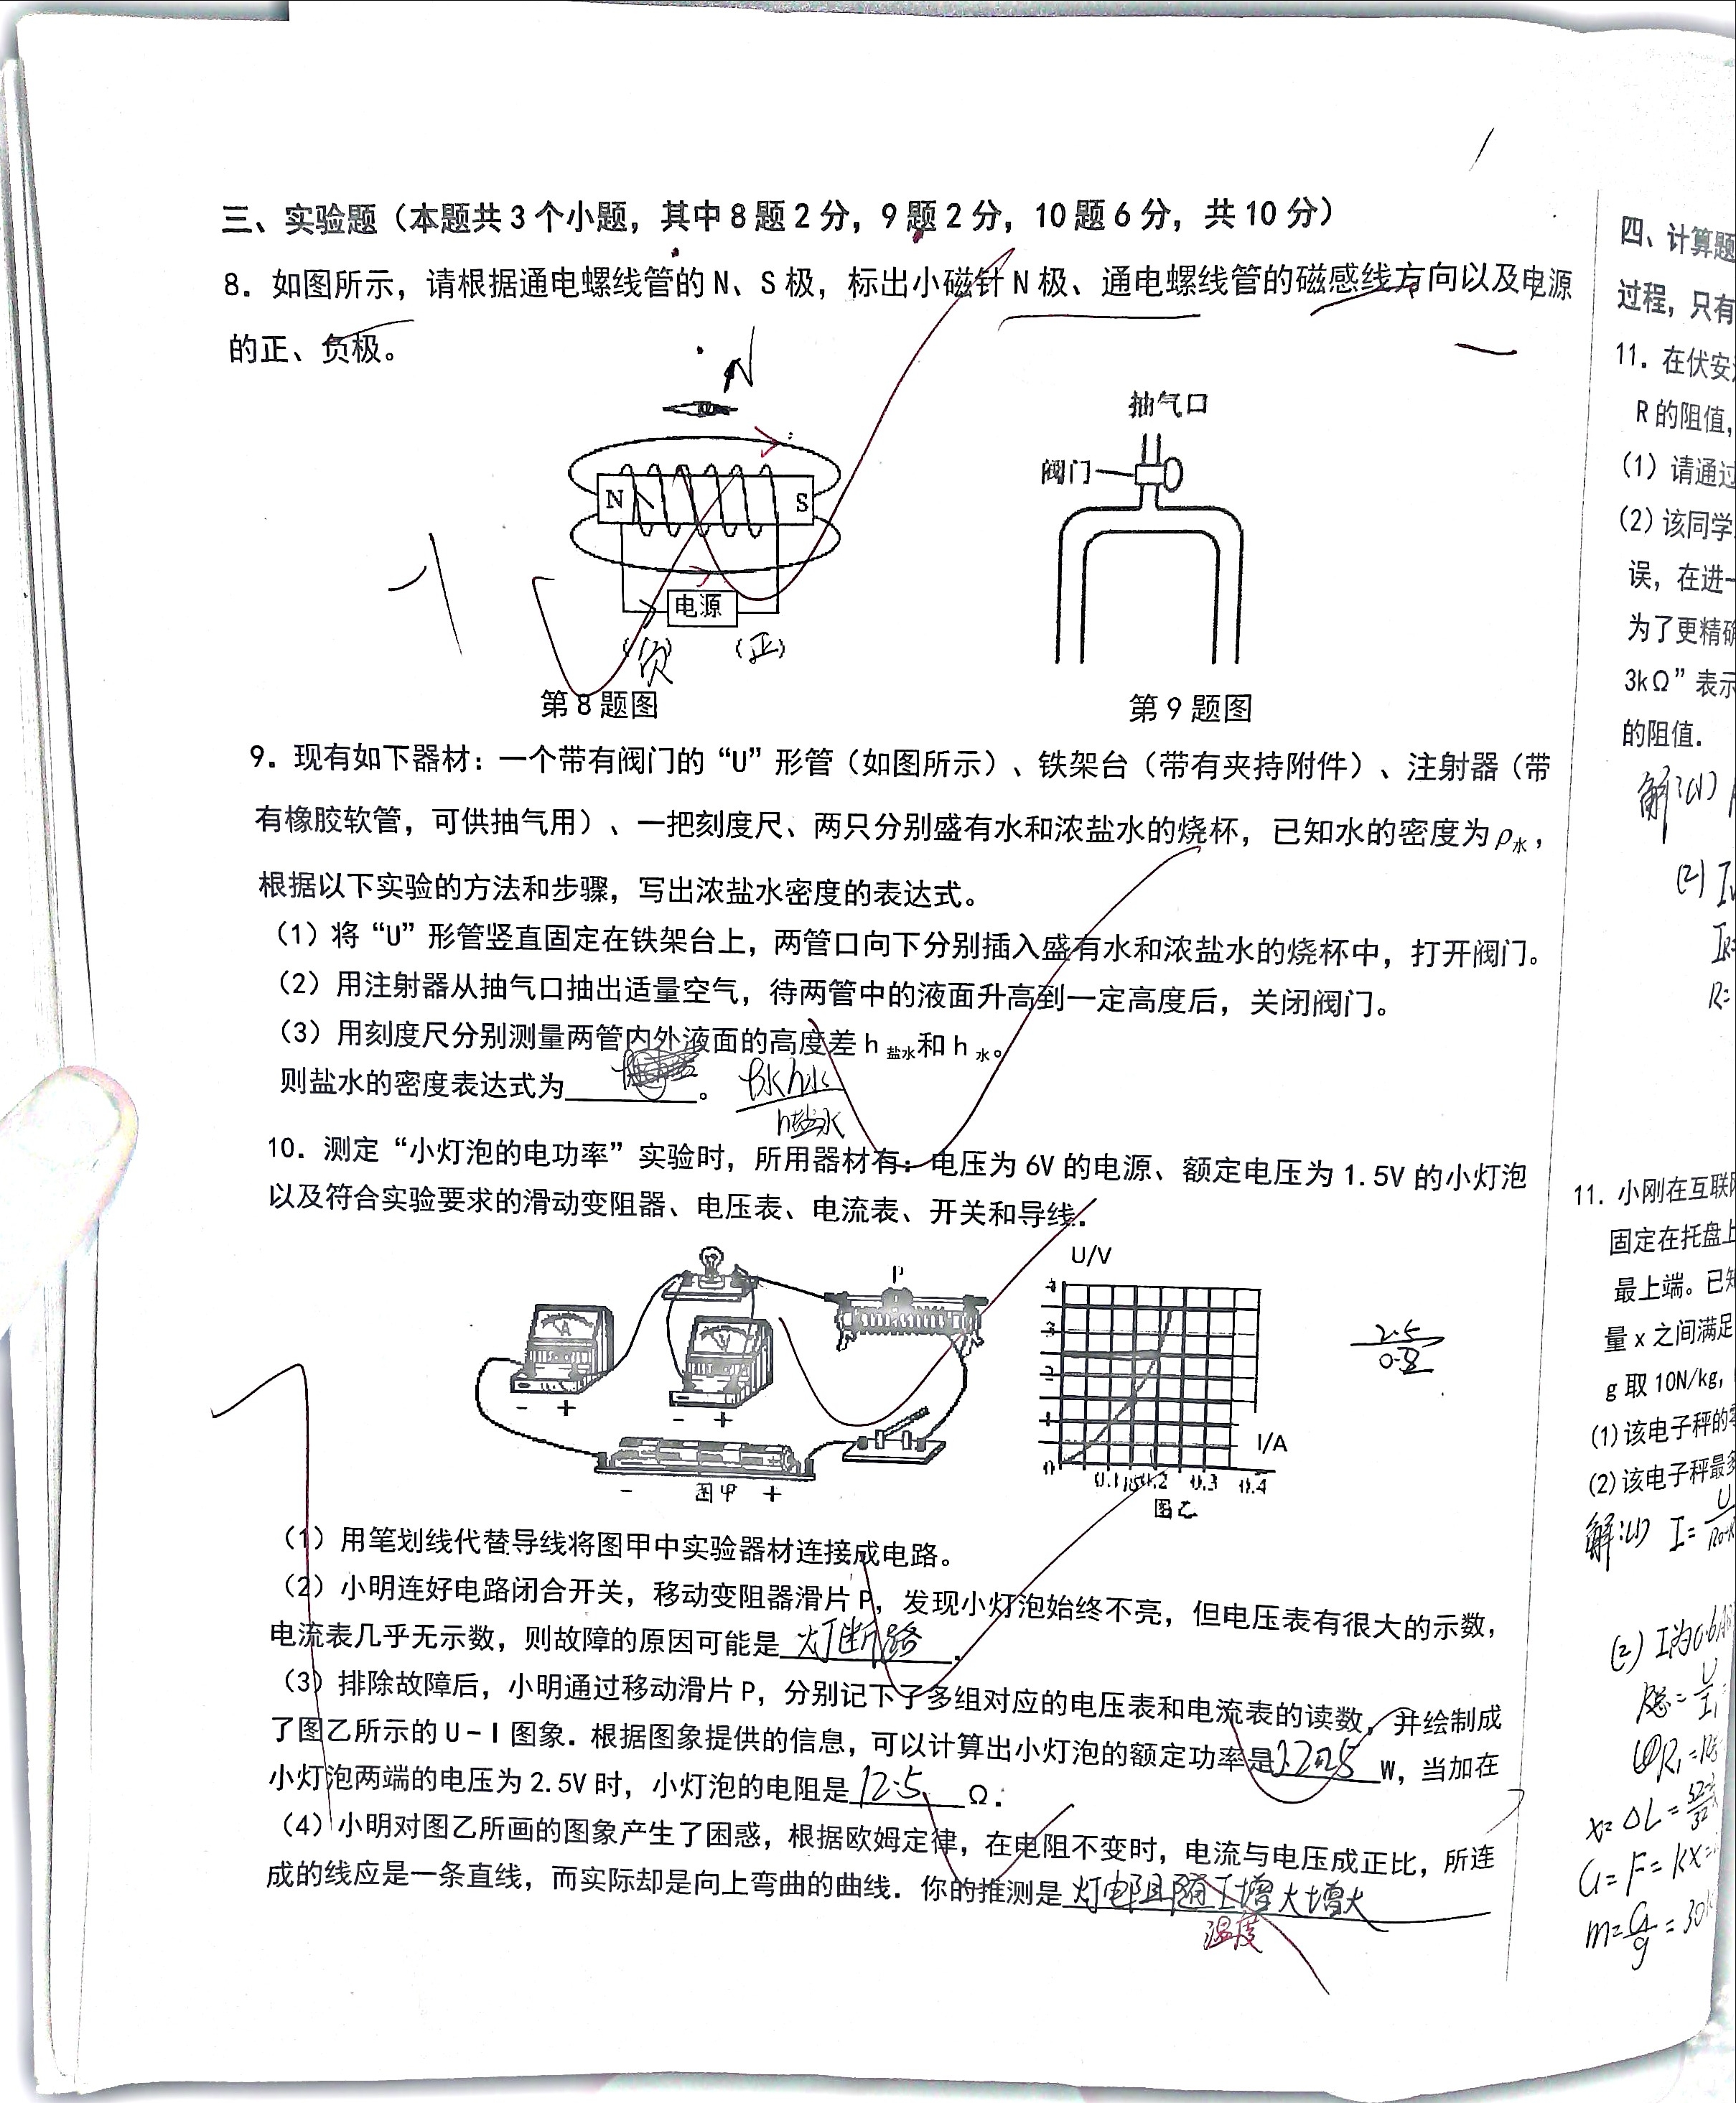 三、实验题（本题共3个小题，其中8题2分，9题2分，10题6分，共10分）
8．如图所示，请根据通电螺线管的N、S极，标出小磁针N极、通电螺线管的磁感线方向以及电源
的正、负极。
N
N
S
电源
(负)
(正)
第8题图
抽气口
阀门
第9题图
9．现有如下器材：一个带有阀门的“U”形管（如图所示）、铁架台（带有夹持附件）、注射器（带
有橡胶软管，可供抽气用）、一把刻度尺、两只分别盛有水和浓盐水的烧杯，已知水的密度为ρ水，
根据以下实验的方法和步骤，写出浓盐水密度的表达式。
（1）将“U”形管竖直固定在铁架台上，两管口向下分别插入盛有水和浓盐水的烧杯中，打开阀门。
（2）用注射器从抽气口抽出适量空气，待两管中的液面升高到一定高度后，关闭阀门。
（3）用刻度尺分别测量两管内外液面的高度差h盐水和h水。
则盐水的密度表达式为______。
ρ水h水
h盐水
10．测定“小灯泡的电功率”实验时，所用器材有：电压为6V的电源、额定电压为1.5V的小灯泡
以及符合实验要求的滑动变阻器、电压表、电流表、开关和导线．
A
- +
V
- +
P
- 图甲 +
U/V
4
3
2
1
0
0.1 15 0.2 0.3 0.4
I/A
图乙
2.5
（1）用笔划线代替导线将图甲中实验器材连接成电路。
（2）小明连好电路闭合开关，移动变阻器滑片P，发现小灯泡始终不亮，但电压表有很大的示数，
电流表几乎无示数，则故障的原因可能是灯断路．
（3）排除故障后，小明通过移动滑片P，分别记下了多组对应的电压表和电流表的读数，并绘制成
了图乙所示的U－I图象．根据图象提供的信息，可以计算出小灯泡的额定功率是0.225W，当加在
小灯泡两端的电压为2.5V时，小灯泡的电阻是12.5Ω．
（4）小明对图乙所画的图象产生了困惑，根据欧姆定律，在电阻不变时，电流与电压成正比，所连
成的线应是一条直线，而实际却是向上弯曲的曲线．你的推测是灯电阻随I增大增大
温度
四、计算题
过程，只有
11．在伏安
R的阻值，
（1）请通过
（2）该同学
误，在进一
为了更精确
3kΩ”表示
的阻值．
解:(1)
(2) I
R=
11．小刚在互联网
固定在托盘上
最上端。已知
量x之间满足
g取10N/kg，
（1）该电子秤的零
（2）该电子秤最多
解:(1) I=
(2) I为0.6A
R总=
x=ΔL=
G=F=kx=
m=G/g=30